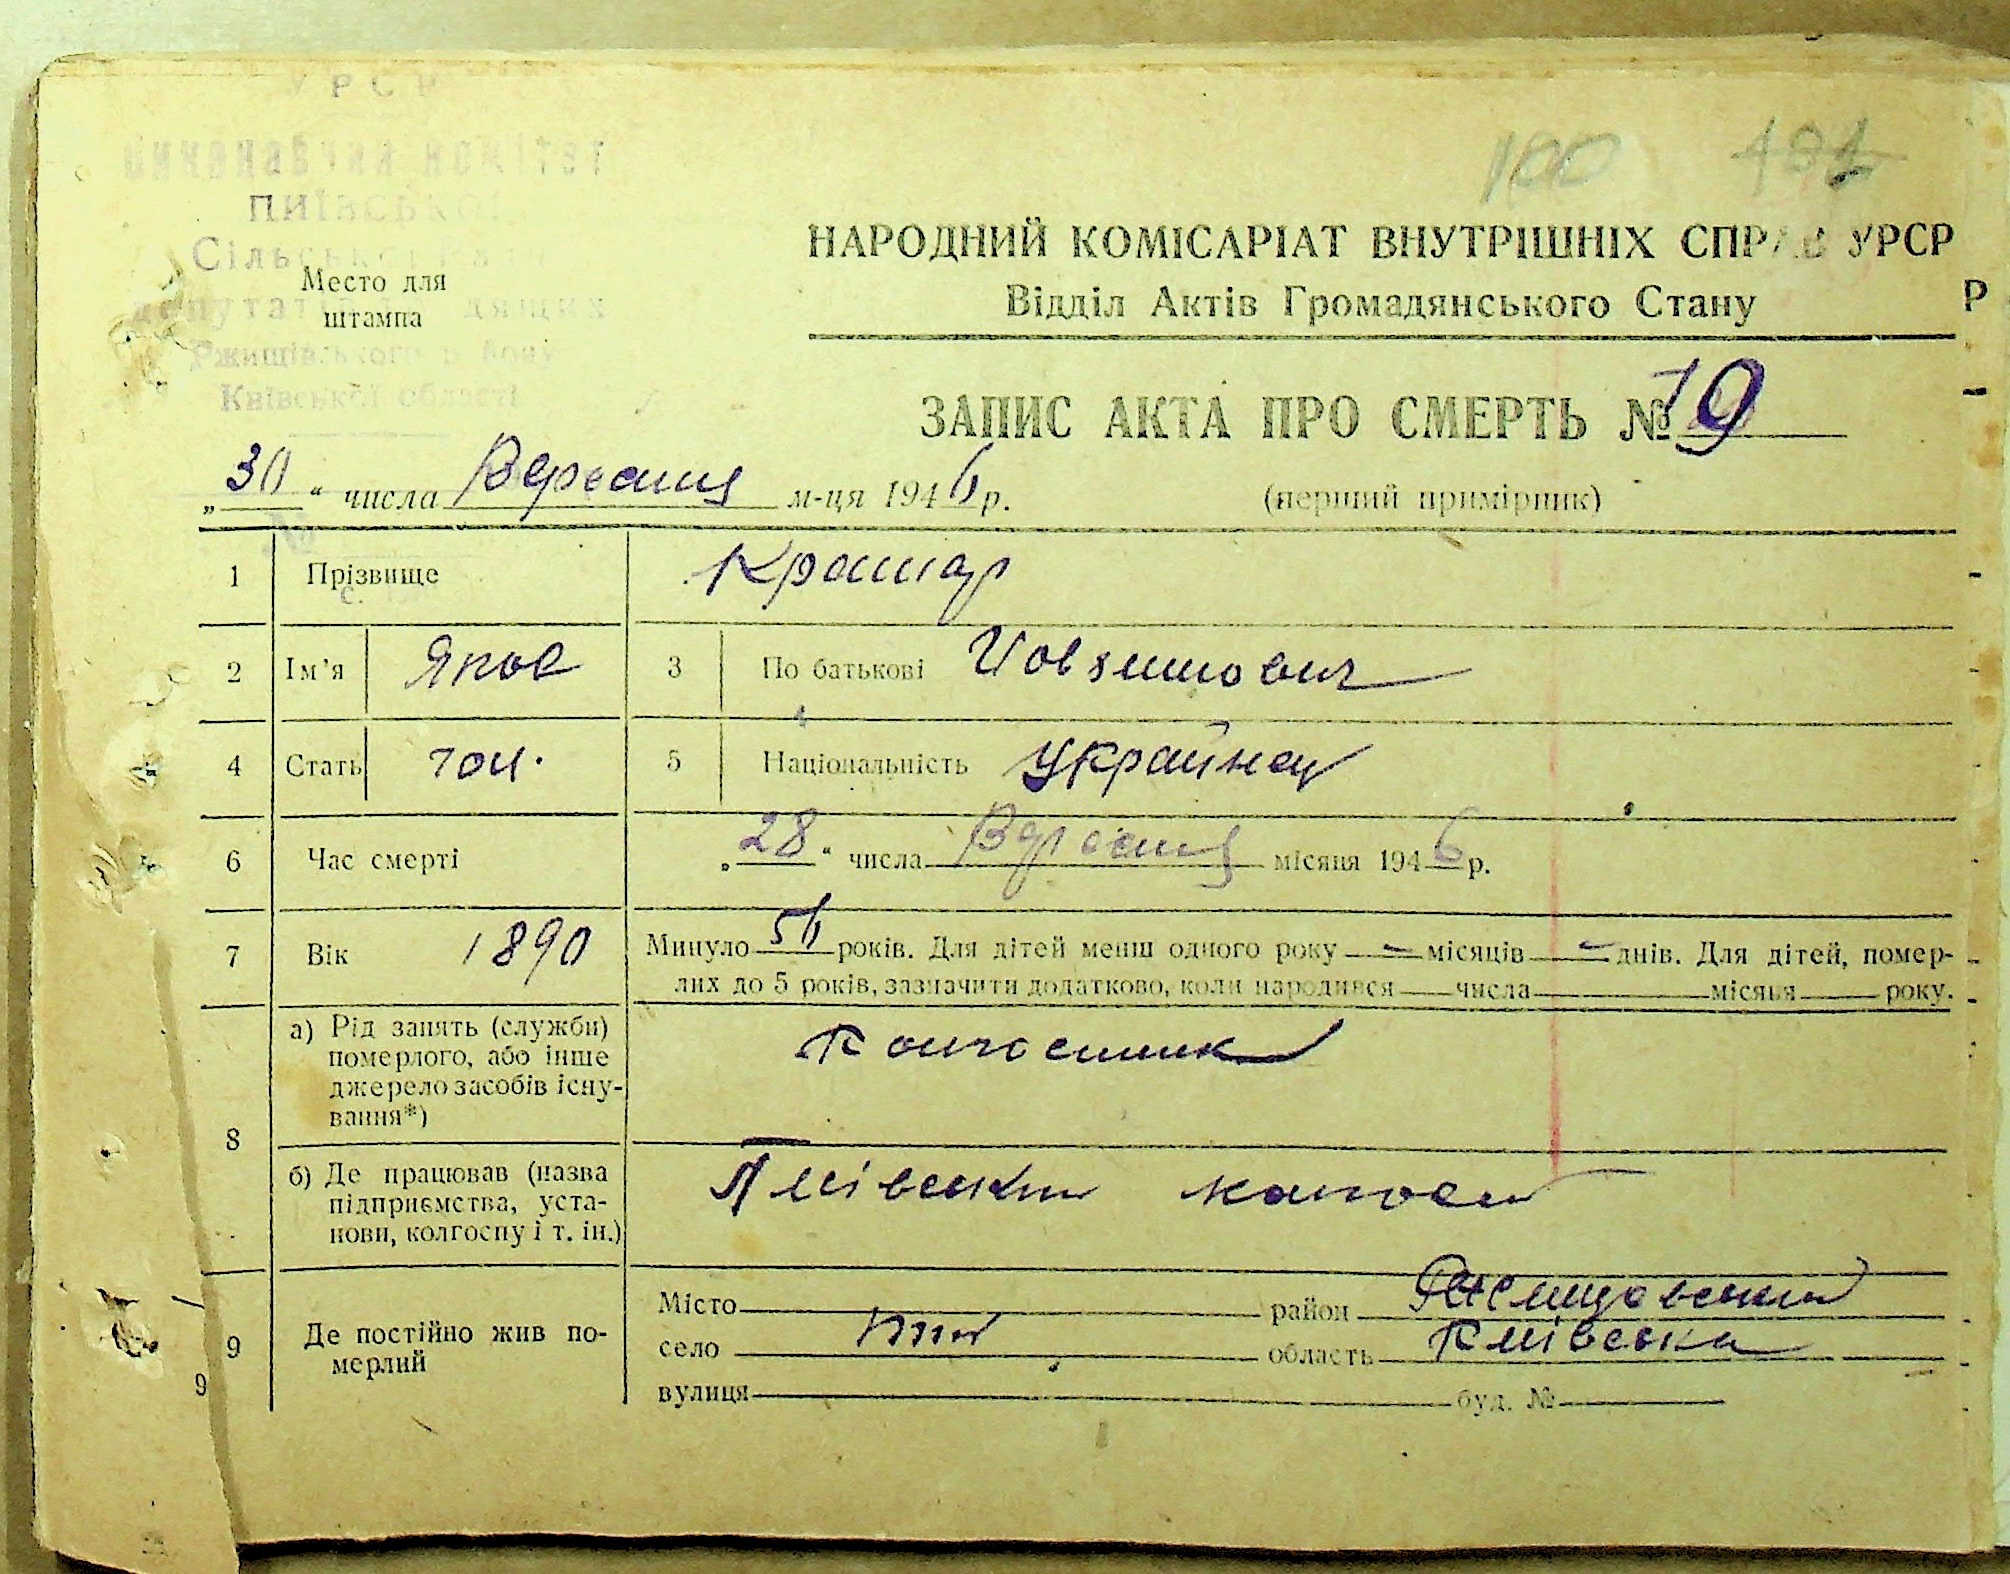 УРСР
Виконавчий комітет
ПИЇВСЬКОЇ
Сільської Ради
депутатів трудящих
Ржищівського району
Київської області
Место для
штампа
100 101
НАРОДНИЙ КОМІСАРІАТ ВНУТРІШНІХ СПРАВ УРСР
Відділ Актів Громадянського Стану
Р
ЗАПИС АКТА ПРО СМЕРТЬ № 19
„30“ числа Вересня м-ця 1946 р. (перший примірник)
1 Прізвище Крашар
2 Ім'я Яков 3 По батькові
4 Стать чол. 5 Національність Украйнец
6 Час смерті „28“ числа Вересня місяця 1946 р.
7 Вік 1890 Минуло 56 років. Для дітей менш одного року — місяців — днів. Для дітей, помер-
лих до 5 років, зазначити додатково, коли народився числа місяця року.
8 а) Рід занять (служби)
померлого, або інше
джерело засобів існу-
вання*) Колгоспник
б) Де працював (назва
підприємства, уста-
нови, колгоспу і т. ін.) Пиівський колгосп
9 Де постійно жив по-
мерлий
Місто район Ржищевский
село Пии область Киівська
вулиця буд. №
9